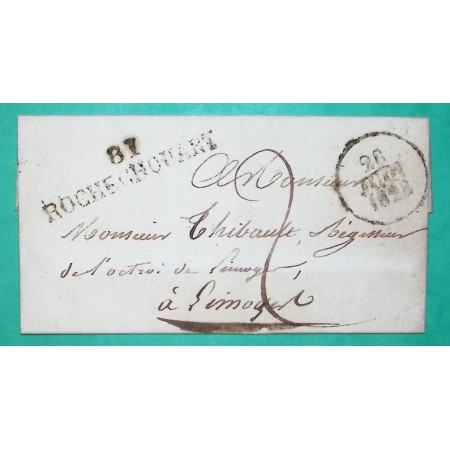 81
ROCHECHOUART
26
2
A Monsieur
Monsieur Thibault, Régisseur
de l'octroi de Limoges,
à Limoges